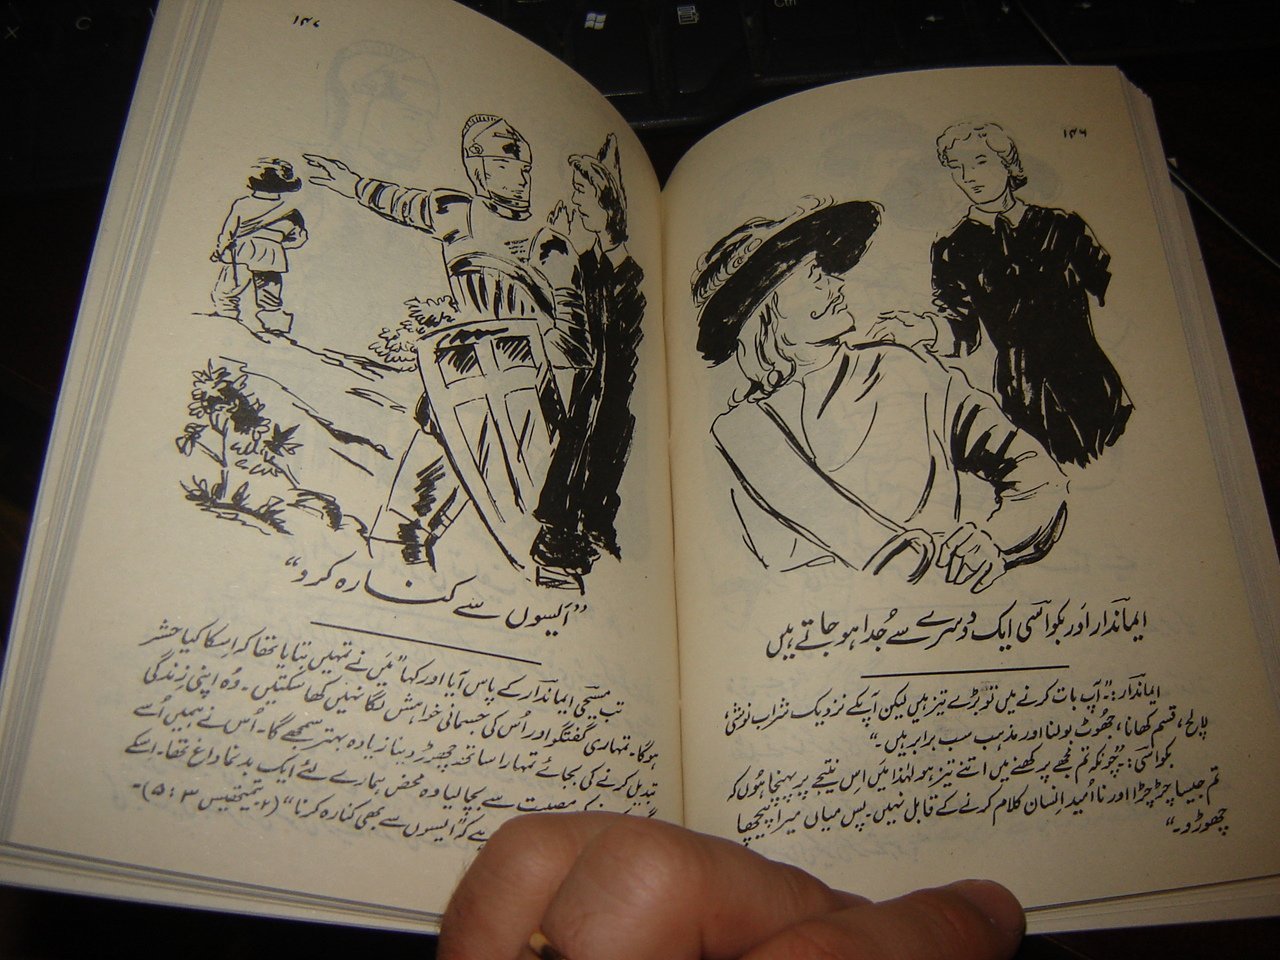 ۱۴۶
ایماندار اور بکواسی ایک دوسرے سے جُدا ہو جاتے ہیں
ایماندار: "آپ بات کرنے میں تو بڑے تیز ہیں لیکن آپکے نزدیک شراب نوشی،
لالچ، قسم کھانا، جھوٹ بولنا اور مذہب سب برابر ہیں۔"
بکواسی: "چُونکہ تم مجھے پرکھنے میں اتنے تیز ہو لہٰذا میں اِس نتیجے پر پہنچا ہُوں کہ
تم جیسا چڑچڑا اور نااُمید اِنسان کلام کرنے کے قابل نہیں۔ پس میاں میرا پیچھا
چھوڑو۔"
۱۴۷
"اَیسوں سے کنارہ کرو"
تب مسیحی ایماندار کے پاس آیا اور کہا "میَں نے تمہیں بتایا تھا کہ اِسکا کیا حشر
ہوگا۔ تمہاری گفتگو اور اُس کی جسمانی خواہش لگا نہیں کھا سکتیں۔ وُہ اپنی زِندگی
تبدیل کرنے کی بجائے تمہارا ساتھ چھوڑ دینا زیادہ بہتر سمجھے گا۔ اُس نے ہمیں اُسے
کی مصیبت سے بچا لیا وہ محض ہمارے لئے ایک بدنما داغ تھا۔ اِسکے
ہے کہ "اَیسوں سے بھی کنارہ کرنا" (۲۔تیمتھیس ۳:۵)۔
Ctrl
X
C